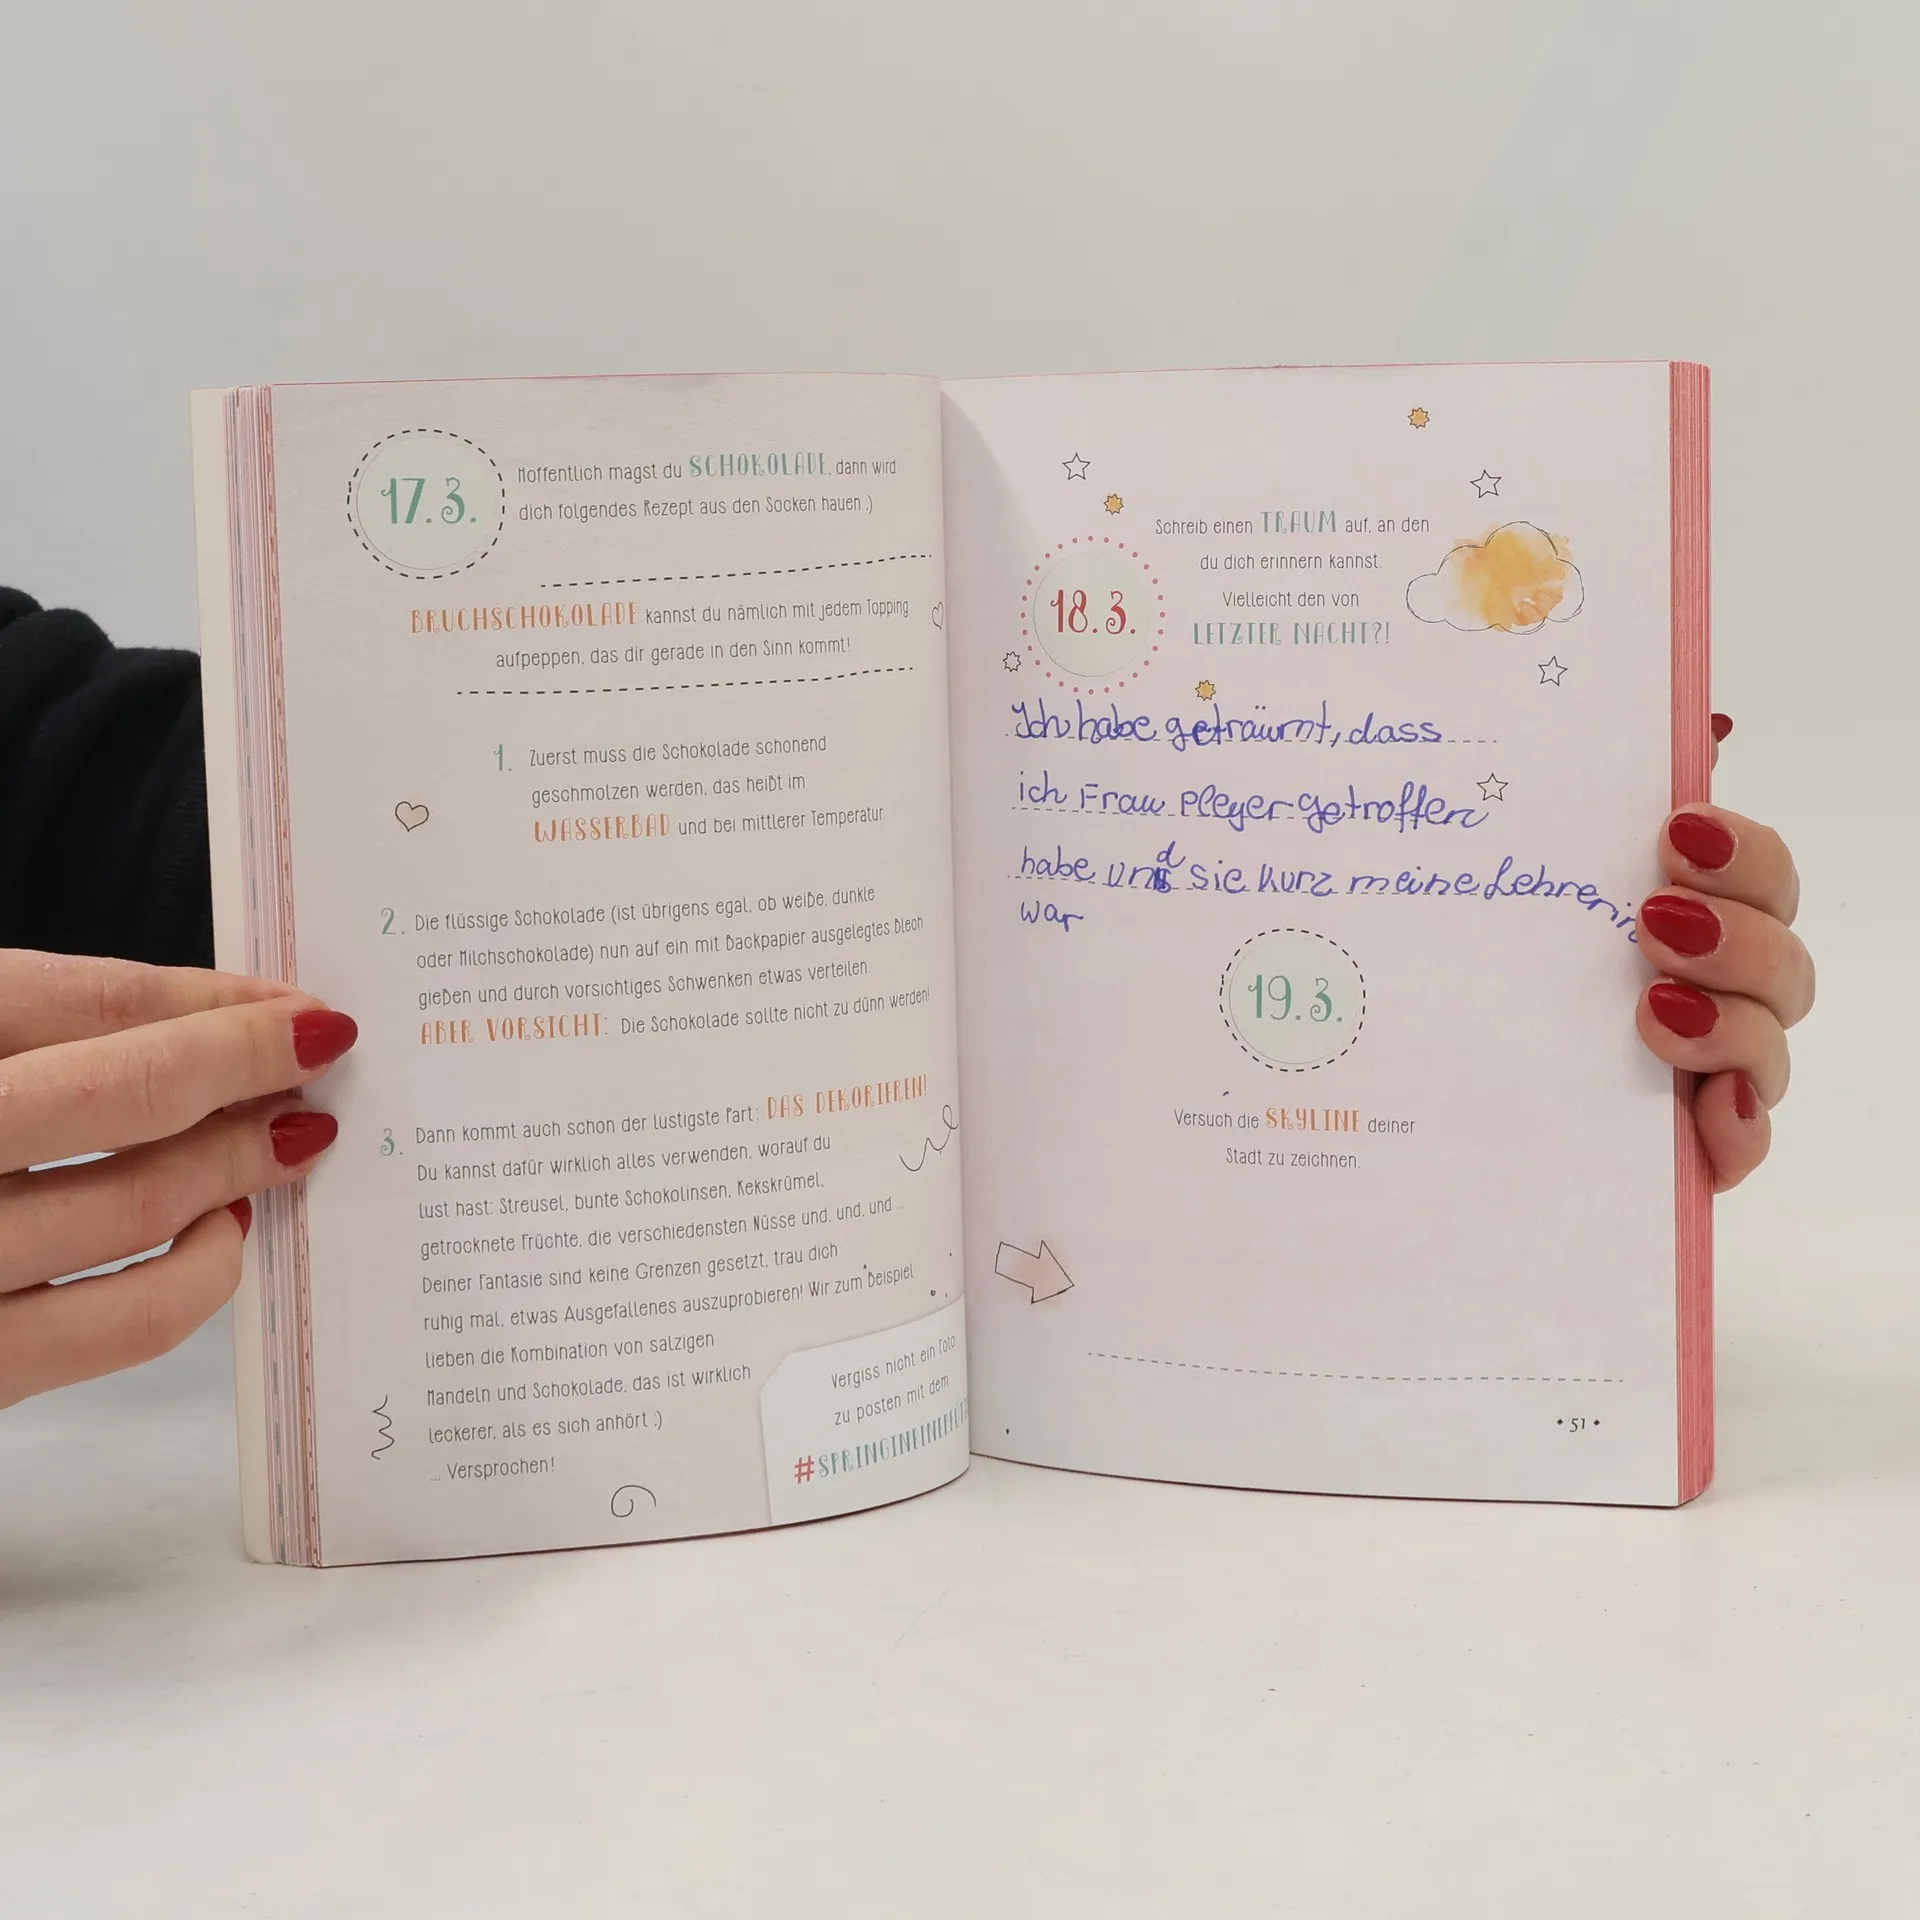 17.3.
Hoffentlich magst du SCHOKOLADE, dann wird
dich folgendes Rezept aus den Socken hauen ;)
BRUCHSCHOKOLADE kannst du nämlich mit jedem Topping
aufpeppen, das dir gerade in den Sinn kommt!
1. Zuerst muss die Schokolade schonend
geschmolzen werden, das heißt im
WASSERBAD und bei mittlerer Temperatur.
2. Die flüssige Schokolade (ist übrigens egal, ob weiße, dunkle
oder Milchschokolade) nun auf ein mit Backpapier ausgelegtes Blech
gießen und durch vorsichtiges Schwenken etwas verteilen.
ABER VORSICHT: Die Schokolade sollte nicht zu dünn werden!
3. Dann kommt auch schon der lustigste Part: DAS DEKORIEREN!
Du kannst dafür wirklich alles verwenden, worauf du
Lust hast: Streusel, bunte Schokolinsen, Kekskrümel,
getrocknete Früchte, die verschiedensten Nüsse und, und, und ...
Deiner Fantasie sind keine Grenzen gesetzt, trau dich
ruhig mal, etwas Ausgefallenes auszuprobieren! Wir zum Beispiel
lieben die Kombination von salzigen
Mandeln und Schokolade, das ist wirklich
leckerer, als es sich anhört :)
... Versprochen!
Vergiss nicht ein Foto
zu posten mit dem
18.3.
Schreib einen TRAUM auf, an den
du dich erinnern kannst.
Vielleicht den von
LETZTER NACHT?!
Ich habe geträumt, dass
ich Frau Pleyer getroffen
habe und sie kurz meine Lehrerin
war
19.3.
Versuch die SKYLINE deiner
Stadt zu zeichnen.
51